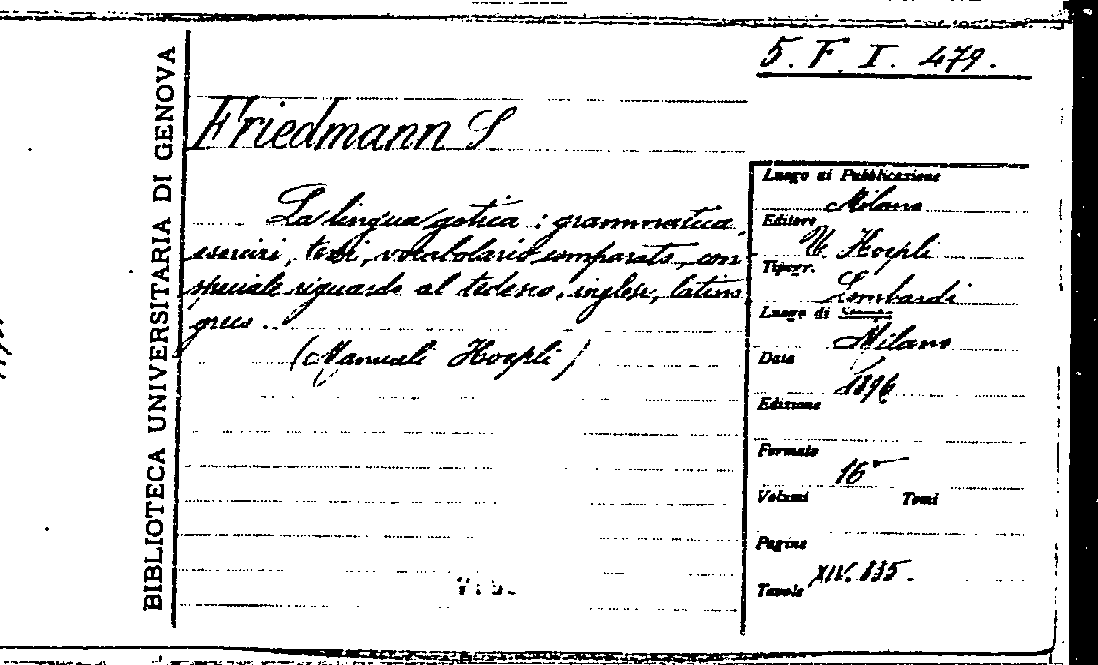 5. F. I. 479.
BIBLIOTECA UNIVERSITARIA DI GENOVA
Friedmann S
La lingua gotica : grammatica,
esercizi, testi, vocabolario comparato, con
speciale riguardo al tedesco, inglese, latino
greco..
(Manuali Hoepli)
Luogo di Pubblicazione
Milano
Editore
U. Hoepli
Tipogr.
Lombardi
Luogo di Stampa
Milano
Data
1896
Edizione
Formato
16°
Volumi Tomi
Pagine
XIV. 335.
Tavole